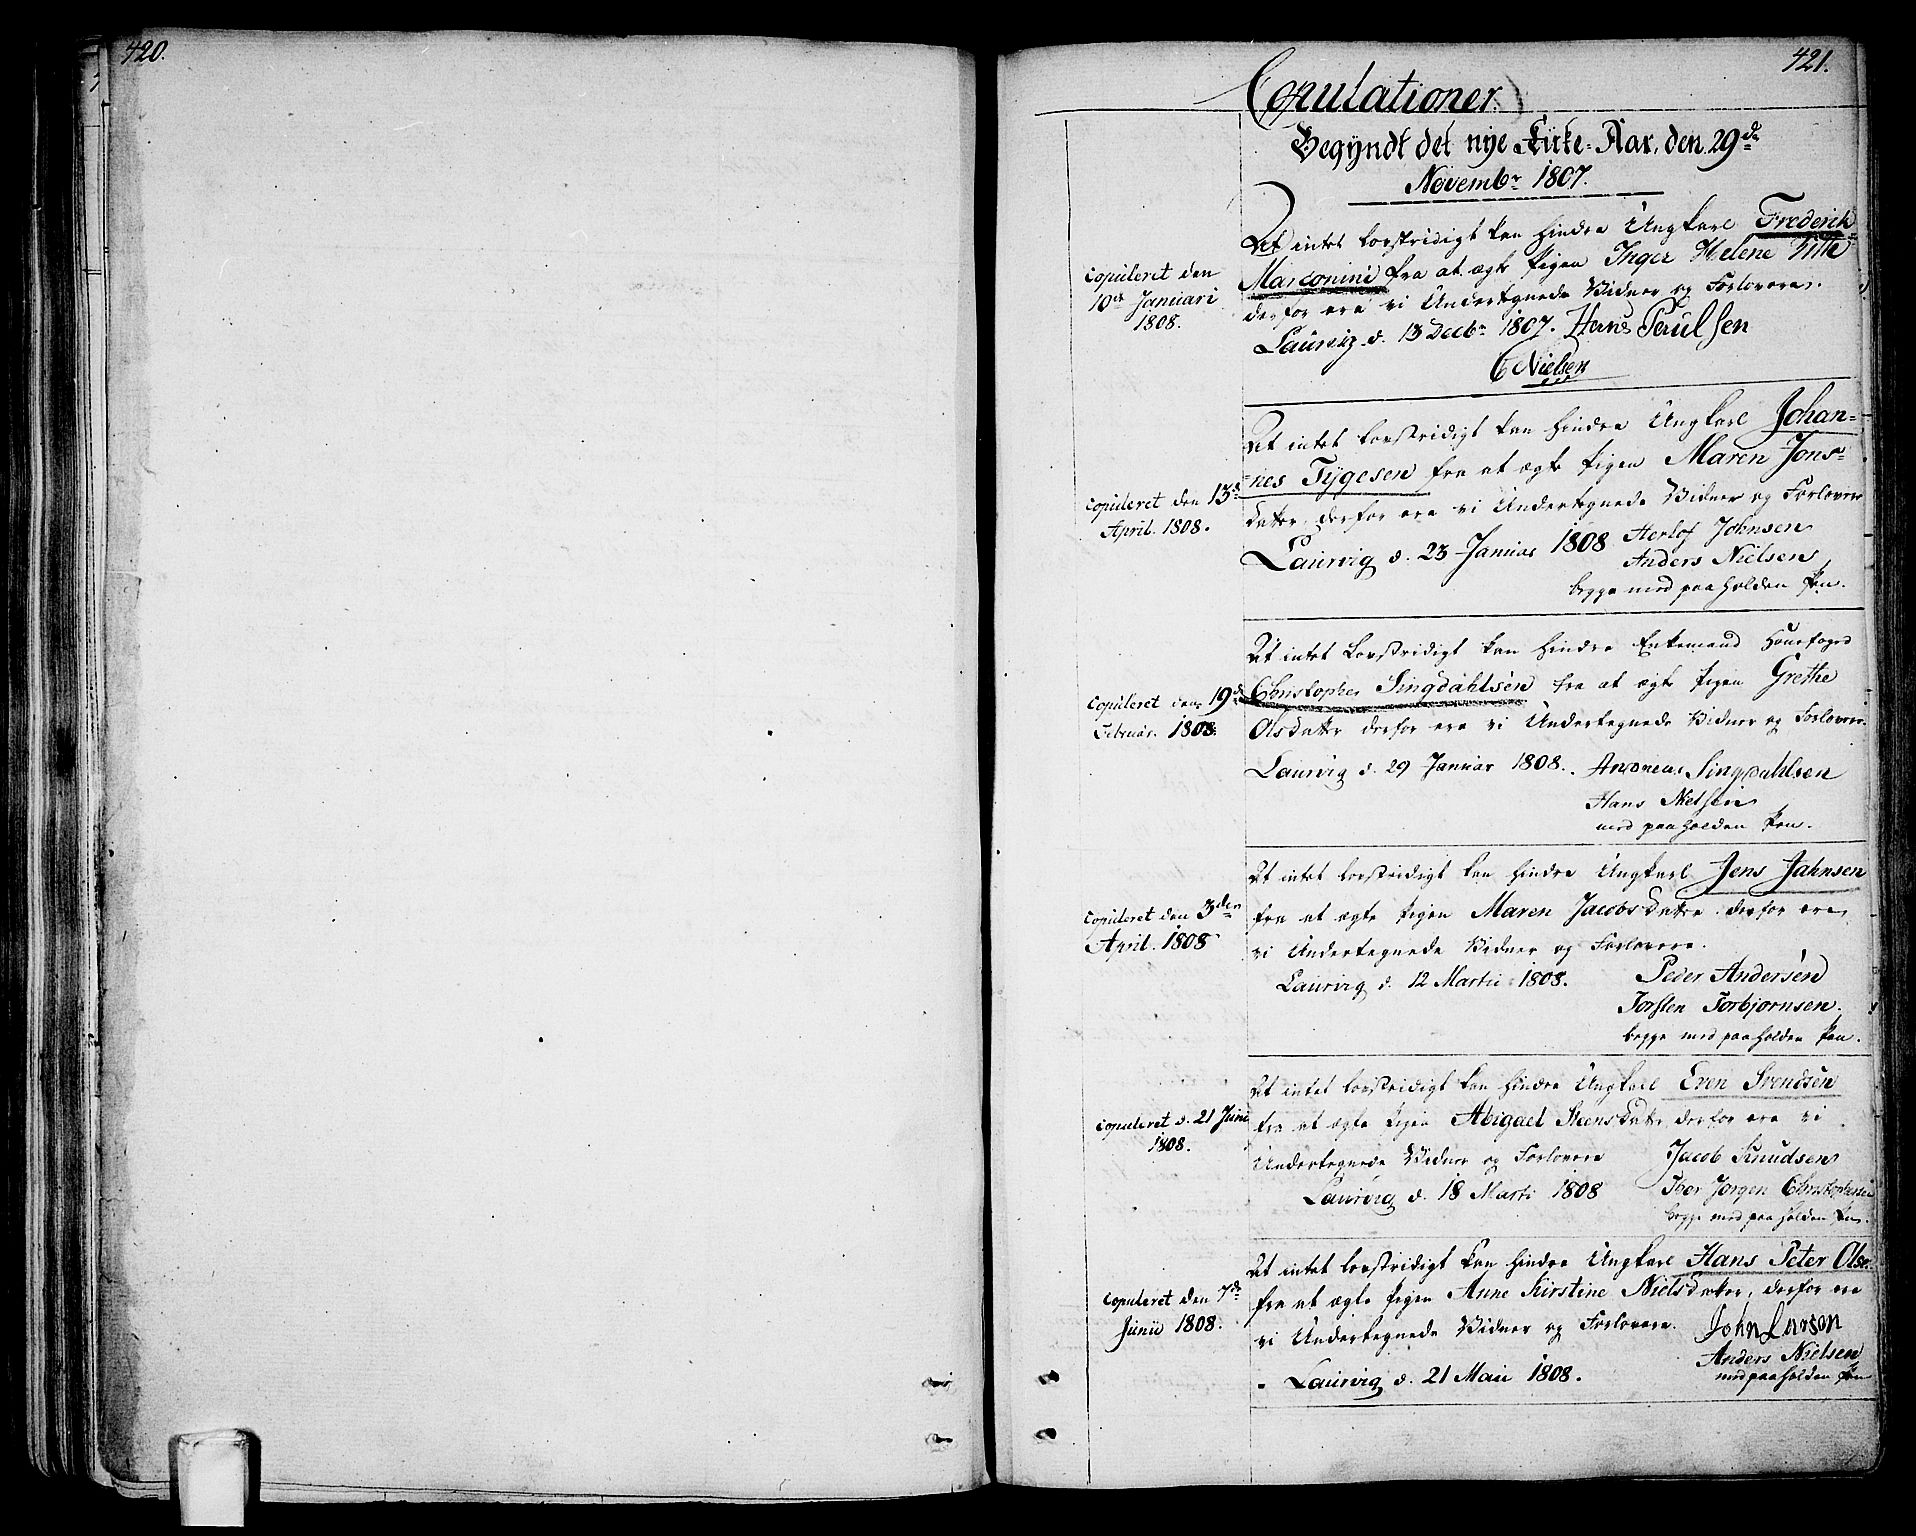 420.
421.
Copulationer.
Begyndt det nye Kirke-Aar, den 29de
Novembr 1807.
At intet lovstridigt kan hindre Ungkarl Frederik
Marconini fra at ægte Pigen Inger Helene
derfor ere vi Undertegnede Vidner og Forlovere.
Laurvig d. 13 Decbr 1807. Hans Poulsen
C Nielsen
Copuleret den
10de Januari
1808.
At intet lovstridigt kan hindre Ungkarl Johan-
nes Tygesen fra at ægte Pigen Maren Jons-
datter, derfor ere vi Undertegnede Vidner og Forlovere
Laurvig d. 23 Januar 1808 Herlof Johnsen
Anders Nielsen
begge med paaholden Pen.
Copuleret den 13de
April. 1808.
At intet Lovstridigt kan hindre Enkemand
Christopher Singdahlsen fra at ægte Pigen Grethe
Olsdatter derfor ere vi Undertegnede Vidner og Forlovere.
Laurvig d. 29 Januar 1808. Andreas Singdahlsen
Hans Nielsen
med paaholden Pen.
Copuleret den 19de
Februar. 1808.
At intet lovstridigt kan hindre Ungkarl Jens Jahnsen
fra at ægte Pigen Maren Jacobsdatter derfor ere
vi Undertegnede Vidner og Forlovere.
Laurvig d. 12 Martii 1808. Peder Andersen
Torsten Torbjornsen.
begge med paaholden Pen.
Copuleret den 3den
April. 1808
At intet lovstridigt kan hindre Ungkarl Even Svendsen
fra at ægte Pigen Abigael Steensdatter, derfor ere vi
Undertegnede Vidner og Forlovere Jacob Knudsen
Laurvig d. 18 Marti 1808 Iver Jørgen Christophersen
begge med paaholden Pen.
Copuleret d. 21 Juni
1808.
At intet lovstridigt kan hindre Ungkarl Hans Peter Olsen
fra at ægte Pigen Anne Kirstine Nielsdatter, derfor ere
vi Undertegnede Vidner og Forlovere. John Larsen
Anders Nielsen
Laurvig d. 21 Maii 1808. med paaholden Pen
Copuleret den 7de
Junii 1808.